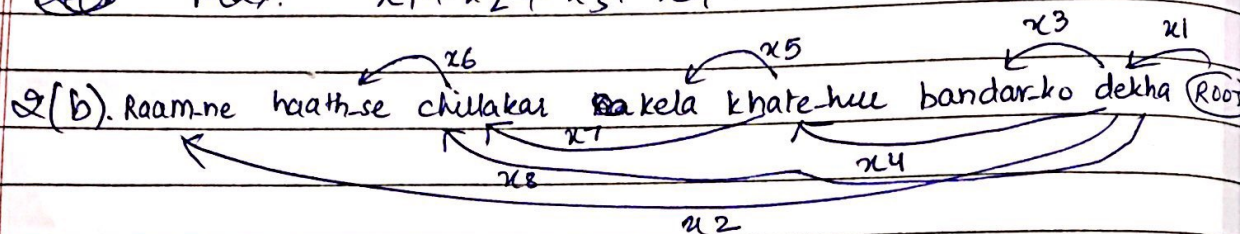 x1 x3
x6 x5
2(b). Raam-ne haath-se chillakar kela khate-hue bandar-ko dekha ROOT
x7 x4
x8
x2